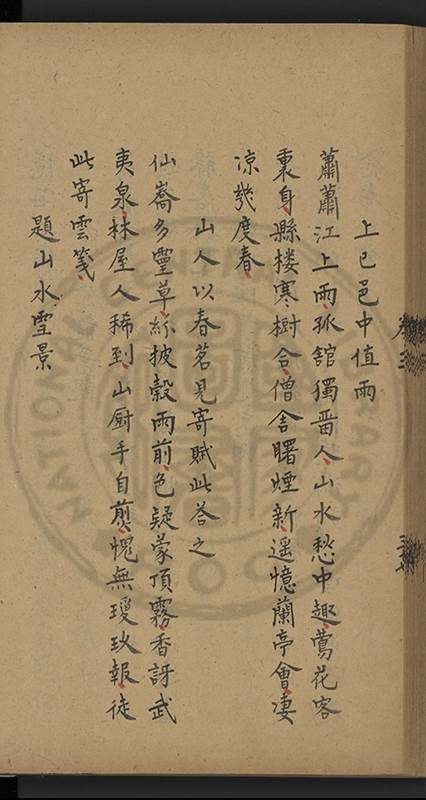 上巳邑中值雨
蕭蕭江上雨孤舘獨畱人山水愁中趣鶯花客
裏身縣楼寒樹合僧舍曙煙新遥憶蘭亭會凄
凉幾度春
山人以春茗見寄賦此荅之
仙嵛多靈草絲披穀雨前色疑蒙頂霧香訝武
夷泉林屋人稀到山厨手自煎愧無瓊玖報徒
此寄雲箋
題山水雪景